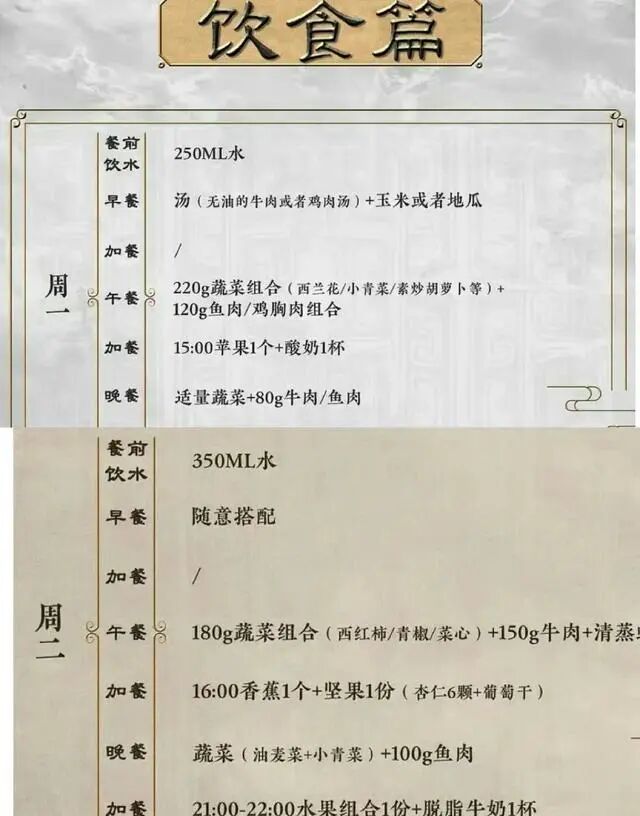 饮食篇
周一
餐前饮水 250ML水
早餐 汤（无油的牛肉或者鸡肉汤）+玉米或者地瓜
加餐 /
午餐 220g蔬菜组合（西兰花/小青菜/素炒胡萝卜等）+
120g鱼肉/鸡胸肉组合
加餐 15:00苹果1个+酸奶1杯
晚餐 适量蔬菜+80g牛肉/鱼肉
周二
餐前饮水 350ML水
早餐 随意搭配
加餐 /
午餐 180g蔬菜组合（西红柿/青椒/菜心）+150g牛肉+清蒸
加餐 16:00香蕉1个+坚果1份（杏仁6颗+葡萄干）
晚餐 蔬菜（油麦菜+小青菜）+100g鱼肉
加餐 21:00-22:00水果组合1份+脱脂牛奶1杯